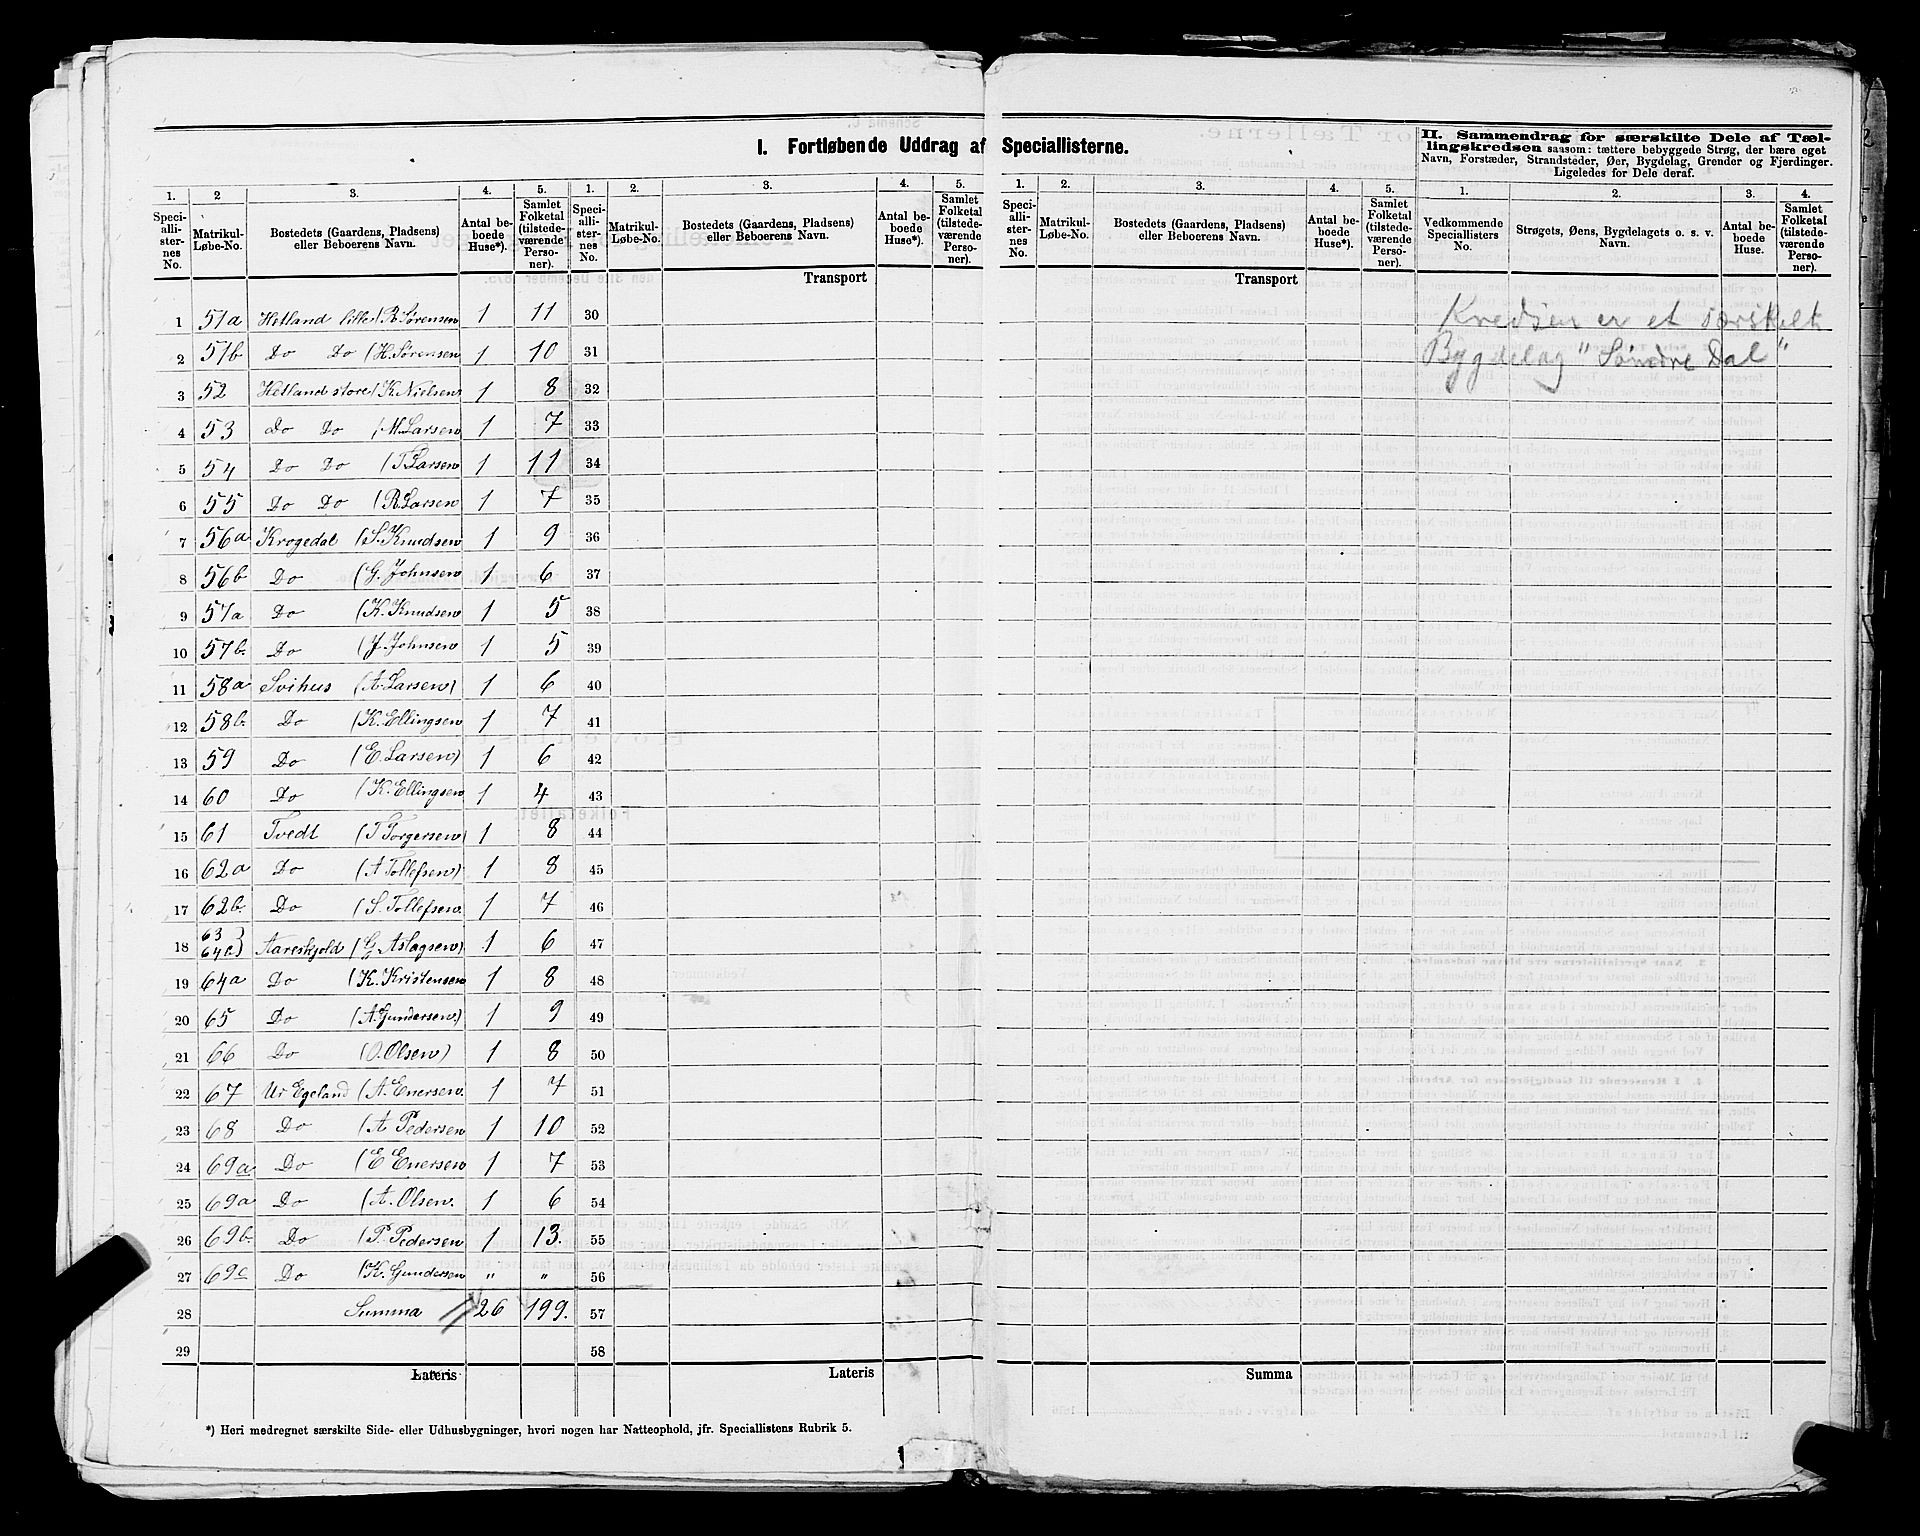 I. Fortløbende Uddrag af Speciallisterne.
II. Sammendrag for særskilte Dele af Tæl-
lingskredsen saasom: tættere bebyggede Strøg, der bære eget
Navn, Forstæder, Strandsteder, Øer, Bygdelag, Grender og Fjerdinger.
Ligeledes for Dele deraf.
1. 2 3. 4. 5. 1. 2. 3. 4. 5. 1. 2. 3. 4. 5. 1. 2. 3. 4.
Speci-allister-nes No. Matrikul-Løbe-No. Bostedets (Gaardens, Pladsens) eller Beboerens Navn. Antal be-boede Huse*). Samlet Folketal (tilstede-værende Perso-ner).
Speci-allister-nes No. Matrikul-Løbe-No. Bostedets (Gaardens, Pladsens) eller Beboerens Navn. Antal be-boede Huse*). Samlet Folketal (tilstede-værende Perso-ner).
Speci-allister-nes No. Matrikul-Løbe-No. Bostedets (Gaardens, Pladsens) eller Beboerens Navn. Antal be-boede Huse*). Samlet Folketal (tilstede-værende Perso-ner).
Vedkommende Speciallisters No. Strøgets, Øens, Bygdelagets o. s. v. Navn. Antal be-boede Huse. Samlet Folketal (tilstede-værende Personer).
Transport Transport
1 51a Hetland lille (R Sørensen 1 11 30 Kredsen er et særskilt
2 51b Do Do (H. Sørensen 1 10 31 Bygdelag "Søndre Dal"
3 52 Hetland store (K Nielsen 1 8 32
4 53 Do Do (M. Larsen 1 7 33
5 54 Do Do (T Larsen 1 11 34
6 55 Do Do (R Larsen 1 7 35
7 56a Krogedal (S. Knudsen 1 9 36
8 56b Do (G. Johnsen 1 6 37
9 57a Do (K. Knudsen 1 5 38
10 57b. Do (J. Johnsen 1 5 39
11 58a Svihus (A Larsen) 1 6 40
12 58b. Do (K. Ellingsen 1 7 41
13 59 Do (E. Larsen) 1 6 42
14 60 Do (K. Ellingsen 1 4 43
15 61 Tvedt (T Torgersen) 1 8 44
16 62a Do (A Tollefsen) 1 8 45
17 62b. Do (S. Tollefsen. 1 7 46
18 63 64c) Aareskjold (G Aslagsen) 1 6 47
19 64a Do (K. Kristensen 1 8 48
20 65 Do (A. Gundersen.) 1 9 49
21 66 Do (O. Olsen) 1 8 50
22 67 Ur Egeland (A. Enersen. 1 7 51
23 68 Do (A Pedersen 1 10 52
24 69a Do (E Enersen 1 7 53
25 69a Do (A. Olsen. 1 6 54
26 69b. Do (P. Pedersen 1 13. 55
27 69c Do (K. Gundersen " " 56
28 Summa 26 199. 57
29 58
Lateris Lateris Summa
*) Heri medregnet særskilte Side- eller Udhusbygninger, hvori nogen har Natteophold, jfr. Speciallistens Rubrik 5.